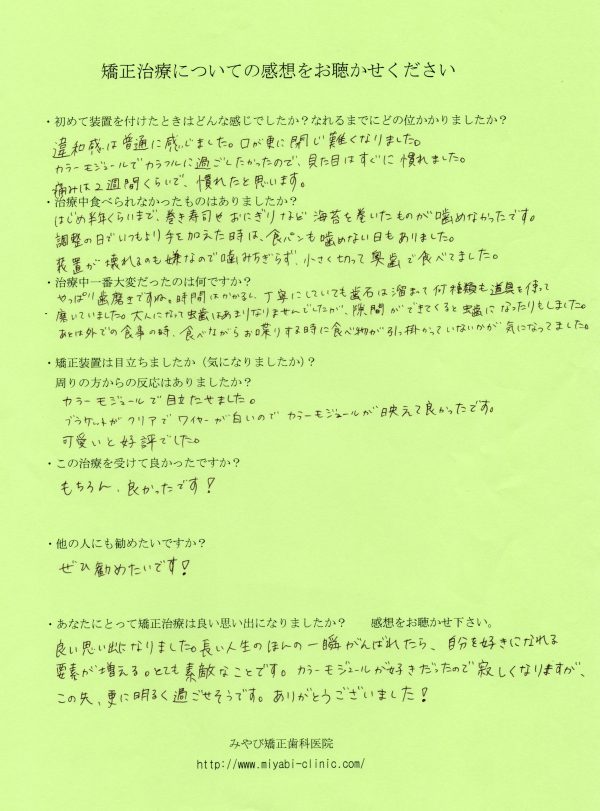 矯正治療についての感想をお聴かせください
・初めて装置を付けたときはどんな感じでしたか？なれるまでにどの位かかりましたか？
違和感は普通に感じました。口が更に閉じ難くなりました。
カラーモジュールでカラフルに過ごしたかったので、見た目はすぐに慣れました。
痛みは2週間くらいで、慣れたと思います。
・治療中食べられなかったものはありましたか？
はじめ半年くらいまで、巻き寿司やおにぎりなど海苔を巻いたものが噛めなかったです。
調整の日でいつもより手を加えた時は、食パンも噛めない日もありました。
装置が壊れるのも嫌なので噛みちぎらず、小さく切って奥歯で食べてました。
・治療中一番大変だったのは何ですか？
やっぱり歯磨きですね。時間はかかるし、丁寧にしていても歯石は溜まって何種類も道具を使って
磨いていました。大人になって虫歯はあまりなりませんでしたが、隙間ができてくると虫歯になったりもしました。
あとは外での食事の時、食べながらお喋りする時に食べ物が引っ掛かっていないかが気になってました。
・矯正装置は目立ちましたか（気になりましたか）？
周りの方からの反応はありましたか？
カラーモジュールで目立たせました。
ブラケットがクリアでワイヤーが白いのでカラーモジュールが映えて良かったです。
可愛いと好評でした。
・この治療を受けて良かったですか？
もちろん、良かったです！
・他の人にも勧めたいですか？
ぜひ勧めたいです！
・あなたにとって矯正治療は良い思い出になりましたか？　感想をお聴かせ下さい。
良い思い出になりました。長い人生のほんの一瞬がんばれたら、自分を好きになれる
要素が増える。とても素敵なことです。カラーモジュールが好きだったので寂しくなりますが、
この先、更に明るく過ごせそうです。ありがとうございました！
みやび矯正歯科医院
http://www.miyabi-clinic.com/